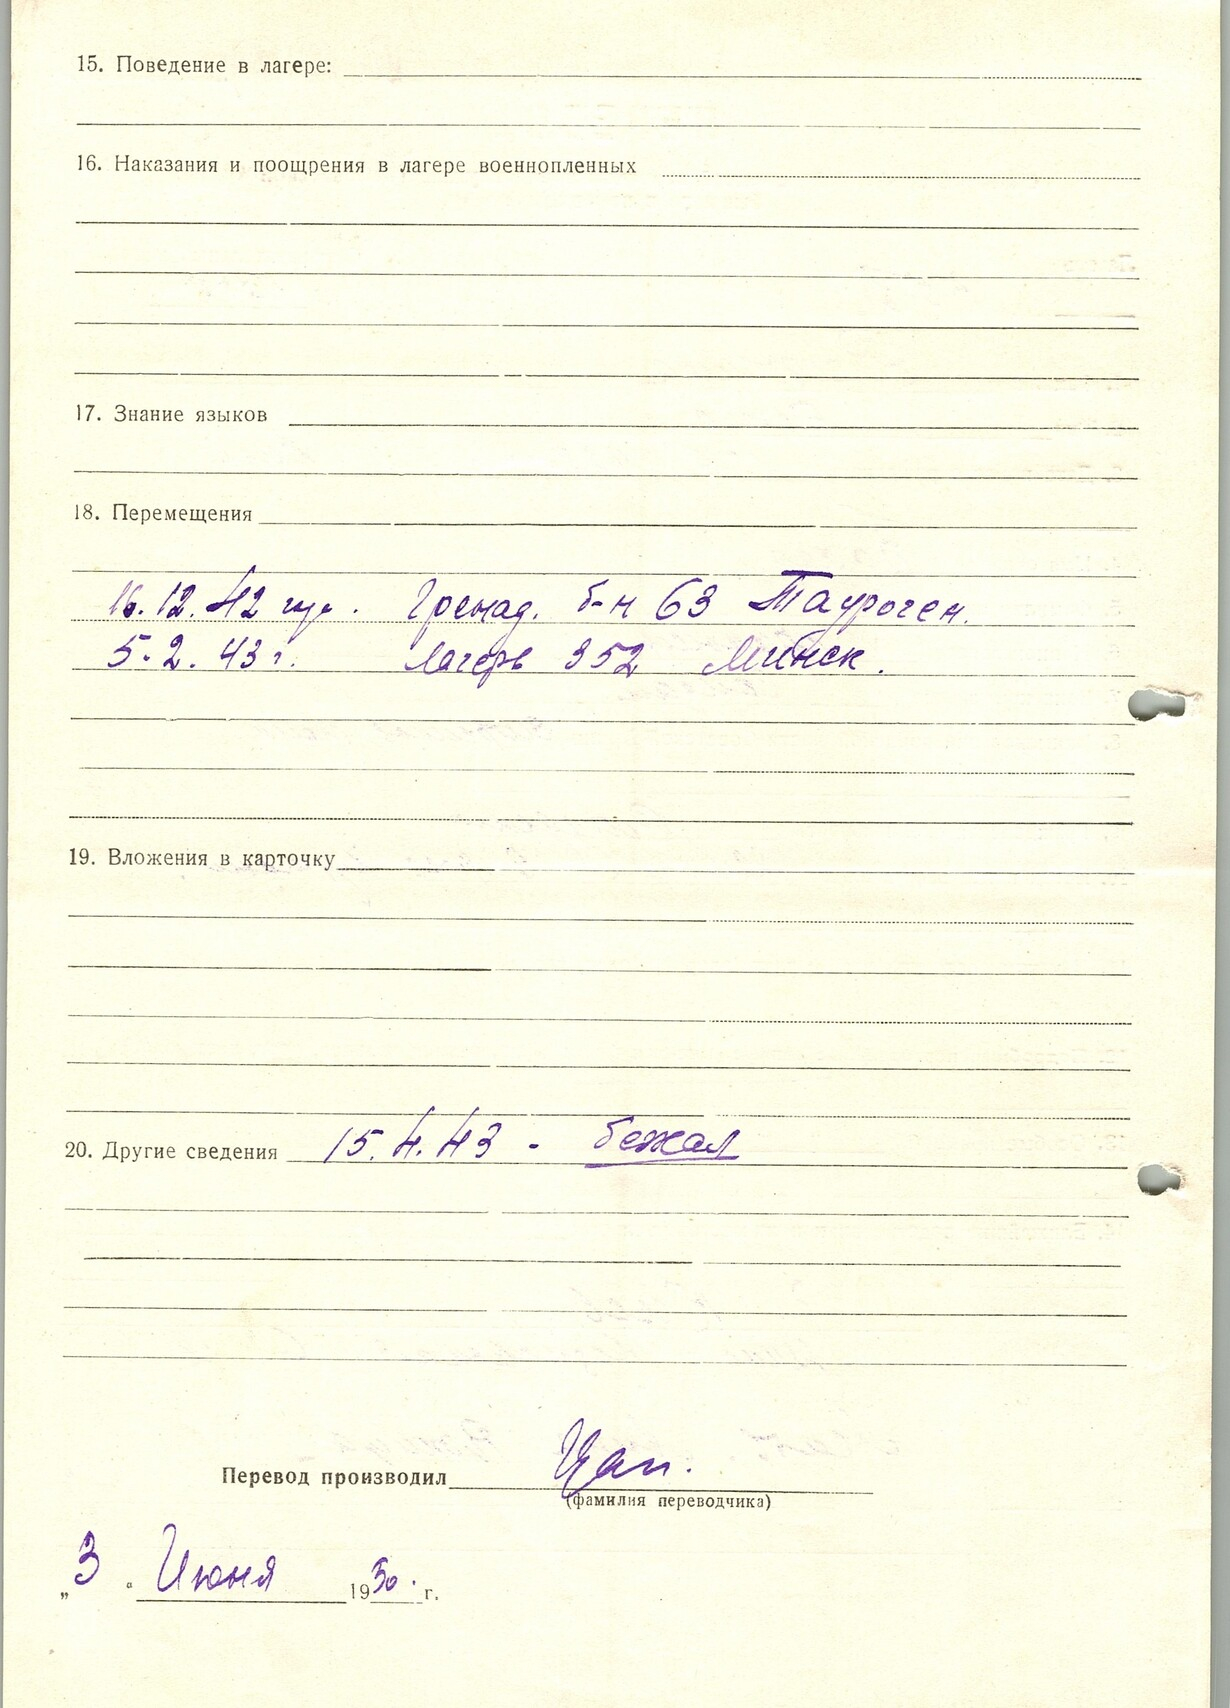 15. Поведение в лагере:
16. Наказания и поощрения в лагере военнопленных
17. Знание языков
18. Перемещения
16.12.42 года. Гренад. б-н 63 Тауроген.
5.2.43 г. лагерь 352 Минск.
19. Вложения в карточку
20. Другие сведения 15.4.43 - бежал
Перевод производил Цап.
(фамилия переводчика)
„3“ Июня 1950 г.